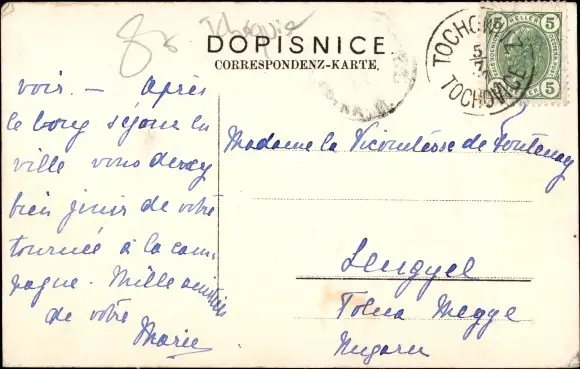 Tochovice
DOPISNICE.
CORRESPONDENZ-KARTE.
TOCHOVICE
TOCHOVICE
5
HELLER
5
5
5
voir. – Après
le long séjour en
ville vous devez
bien jouir de votre
tournée à la cam-
pagne. Mille amitiés
de votre
Marie
Madame la Vicomtesse de Fontenay
Lengyel
Tolna Megye
Ungarn